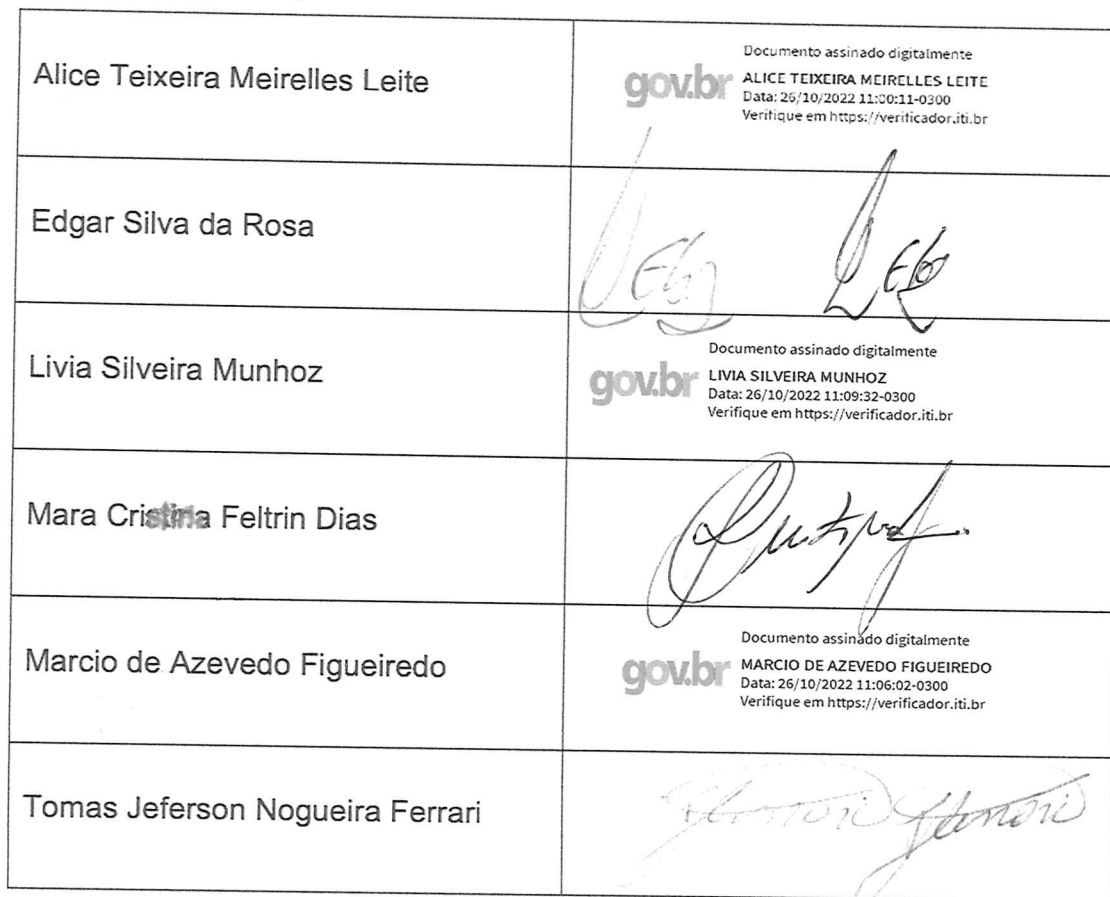 Alice Teixeira Meirelles Leite
Documento assinado digitalmente
gov.br
ALICE TEIXEIRA MEIRELLES LEITE
Data: 26/10/2022 11:00:11-0300
Verifique em https://verificador.iti.br
Edgar Silva da Rosa
Livia Silveira Munhoz
Documento assinado digitalmente
gov.br
LIVIA SILVEIRA MUNHOZ
Data: 26/10/2022 11:09:32-0300
Verifique em https://verificador.iti.br
Mara Cristina Feltrin Dias
Marcio de Azevedo Figueiredo
Documento assinado digitalmente
gov.br
MARCIO DE AZEVEDO FIGUEIREDO
Data: 26/10/2022 11:06:02-0300
Verifique em https://verificador.iti.br
Tomas Jeferson Nogueira Ferrari